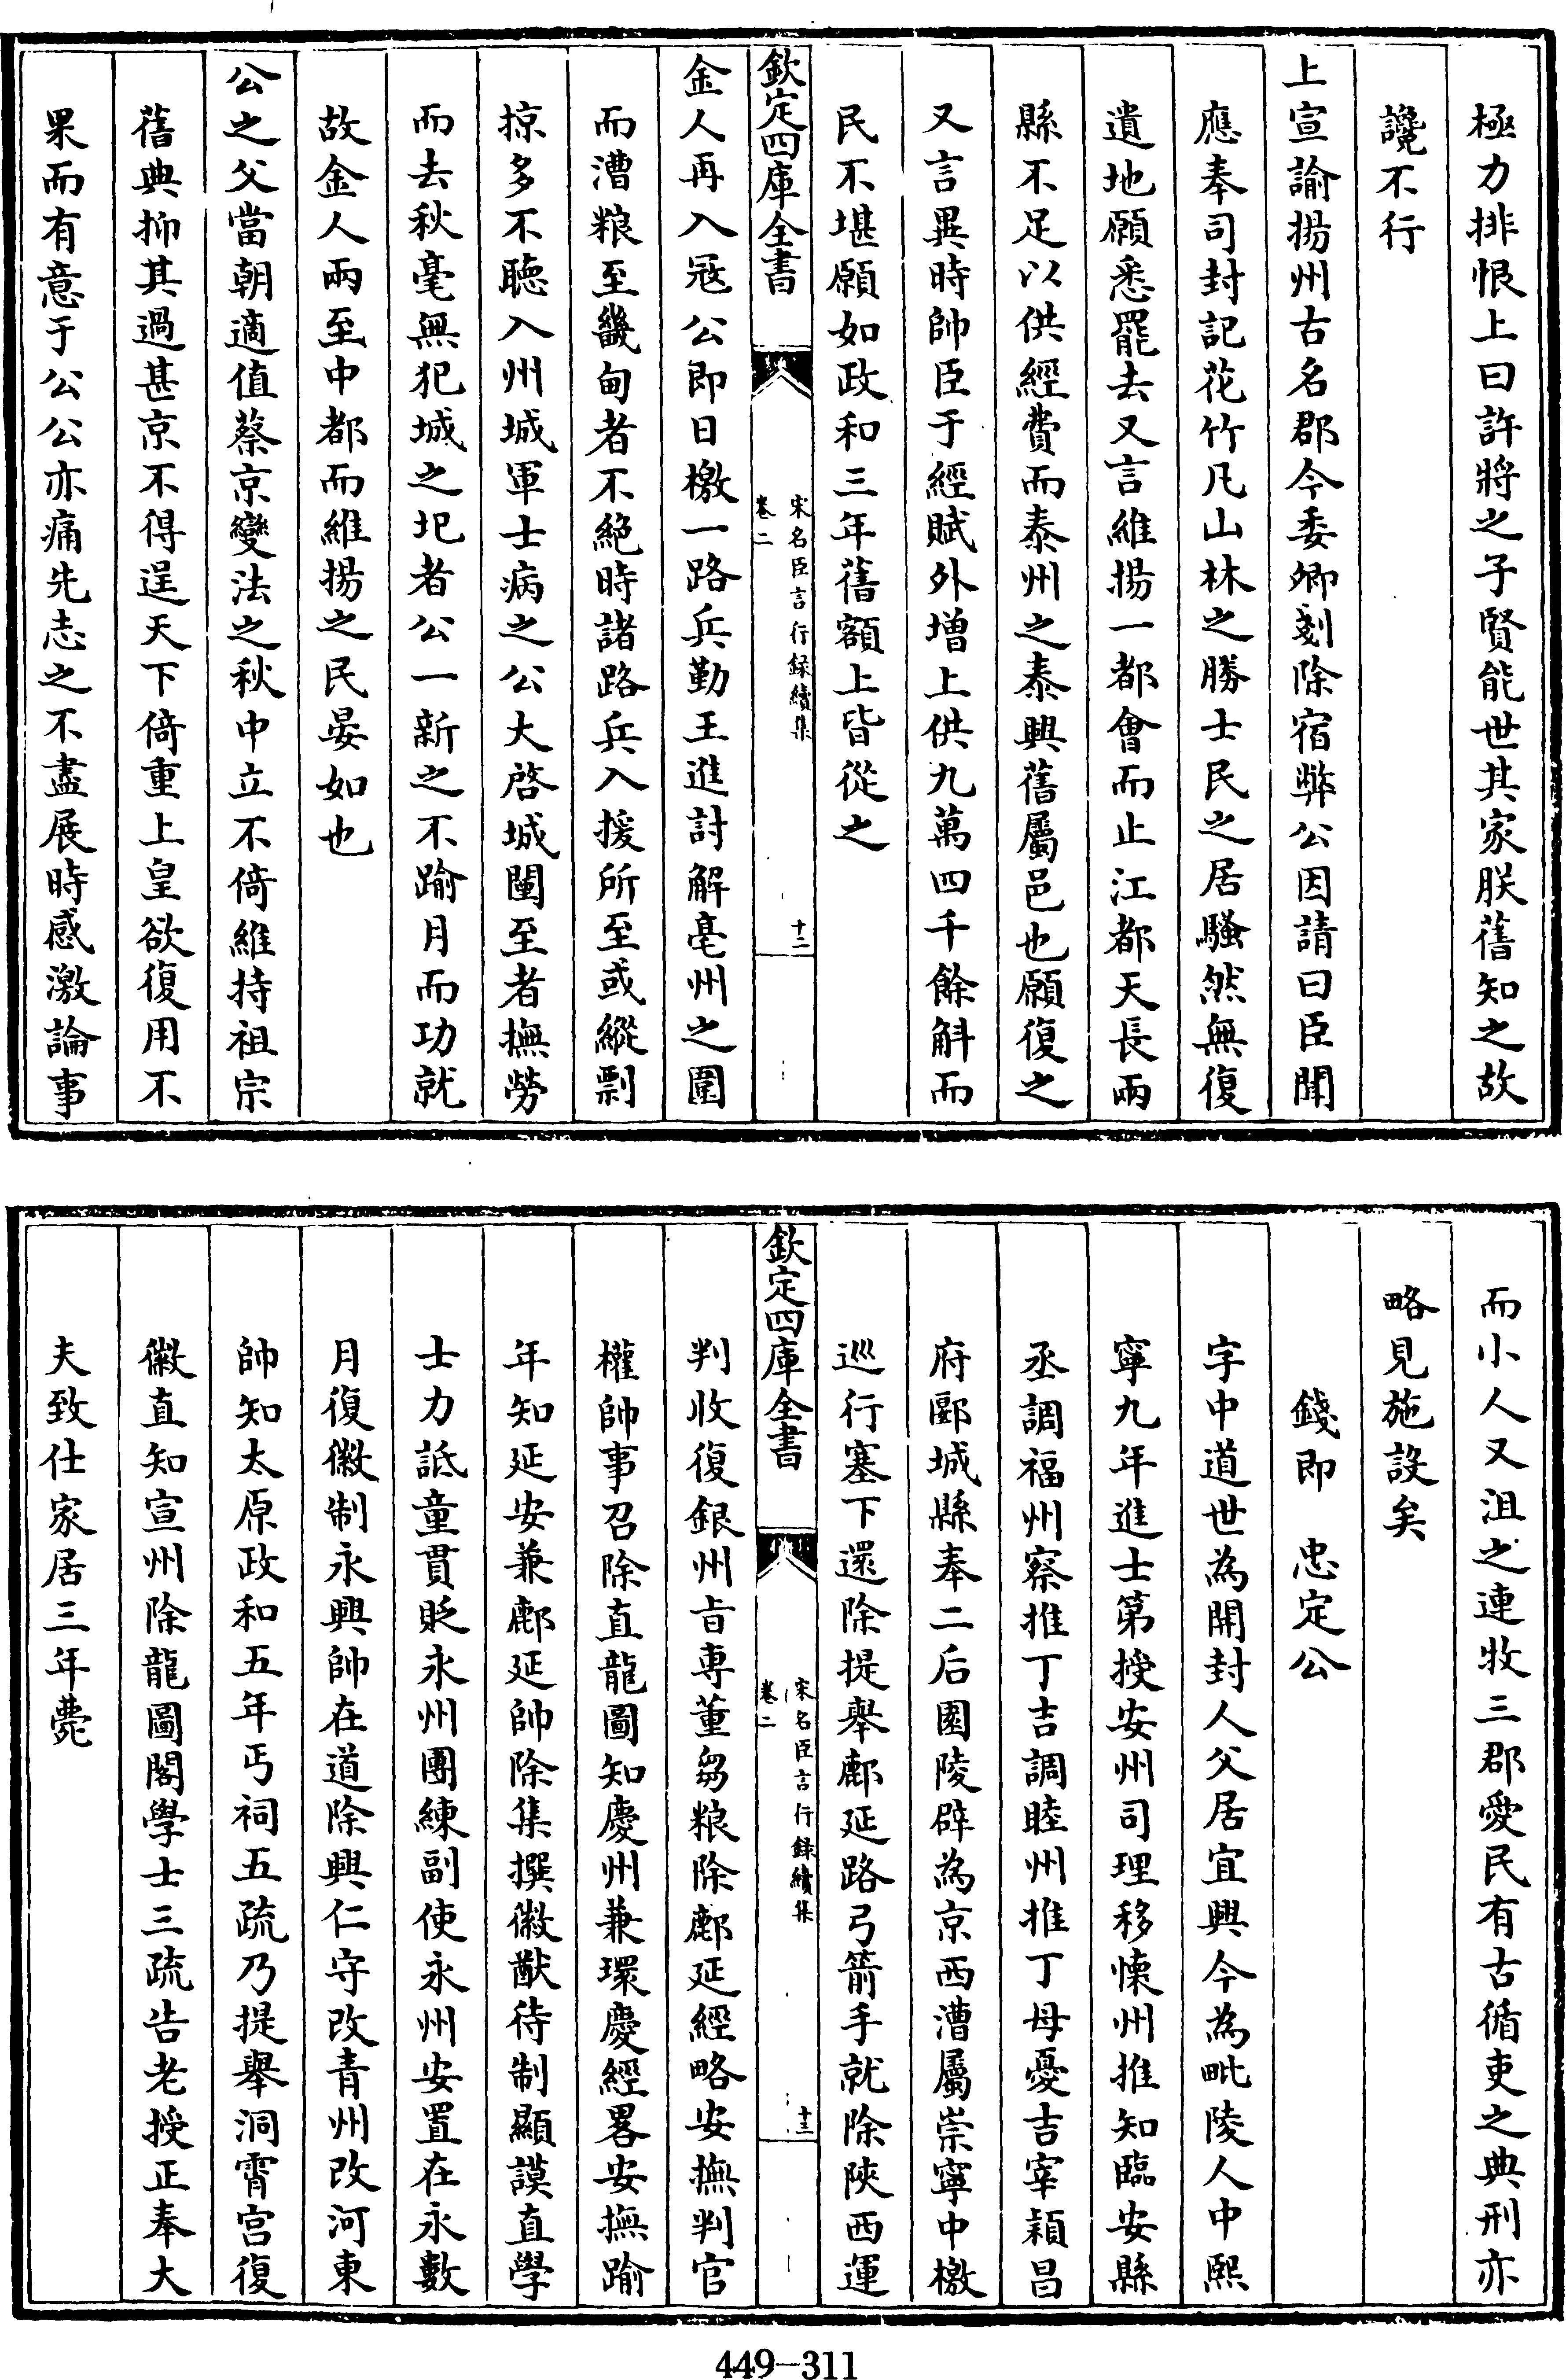 極力排恨上曰許將之子賢能世其家朕舊知之故
讒不行
上宣諭揚州古名郡今委卿剗除宿弊公因請曰臣聞
應奉司封記花竹凡山林之勝士民之居騷然無復
遺地願悉罷去又言維揚一都會而止江都天長兩
縣不足以供經費而泰州之泰興舊屬邑也願復之
又言異時帥臣于經賦外增上供九萬四千餘斛而
民不堪願如政和三年舊額上皆從之
欽定四庫全書
宋名臣言行録續集
卷二
十二
金人再入冦公即日檄一路兵勤王進討解亳州之圍
而漕粮至畿甸者不絶時諸路兵入援所至或縱剽
掠多不聽入州城軍士病之公大啓城闉至者撫勞
而去秋毫無犯城之圮者公一新之不踰月而功就
故金人兩至中都而維揚之民晏如也
公之父當朝適值蔡京變法之秋中立不倚維持祖宗
舊典抑其過甚京不得逞天下倚重上皇欲復用不
果而有意于公公亦痛先志之不盡展時感激論事
而小人又沮之連牧三郡愛民有古循吏之典刑亦
略見施設矣
錢即　忠定公
字中道世為開封人父居宜興今為毗陵人中熙
寧九年進士第授安州司理移懷州推知臨安縣
丞調福州察推丁吉調睦州推丁母憂吉宰穎昌
府郾城縣奉二后園陵辟為京西漕屬崇寧中檄
巡行塞下還除提舉鄜延路弓箭手就除陝西運
欽定四庫全書
宋名臣言行録續集
卷二
十三
判收復銀州㫖専董芻粮除鄜延經略安撫判官
權帥事召除直龍圖知慶州兼環慶經畧安撫踰
年知延安兼鄜延帥除集撰徽猷待制顯謨直學
士力詆童貫貶永州團練副使永州安置在永數
月復徽制永興帥在道除興仁守改青州改河東
帥知太原政和五年丐祠五疏乃提舉洞霄宮復
徽直知宣州除龍圖閣學士三疏告老授正奉大
夫致仕家居三年薨
449-311